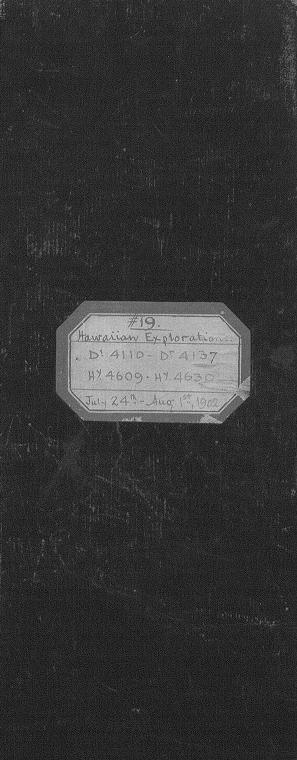 #19.
Hawaiian Explorations.
Dr 4110 - Dr 4137
Hy. 4609 - Hy. 4630
July 24th - Aug. 1st, 1902